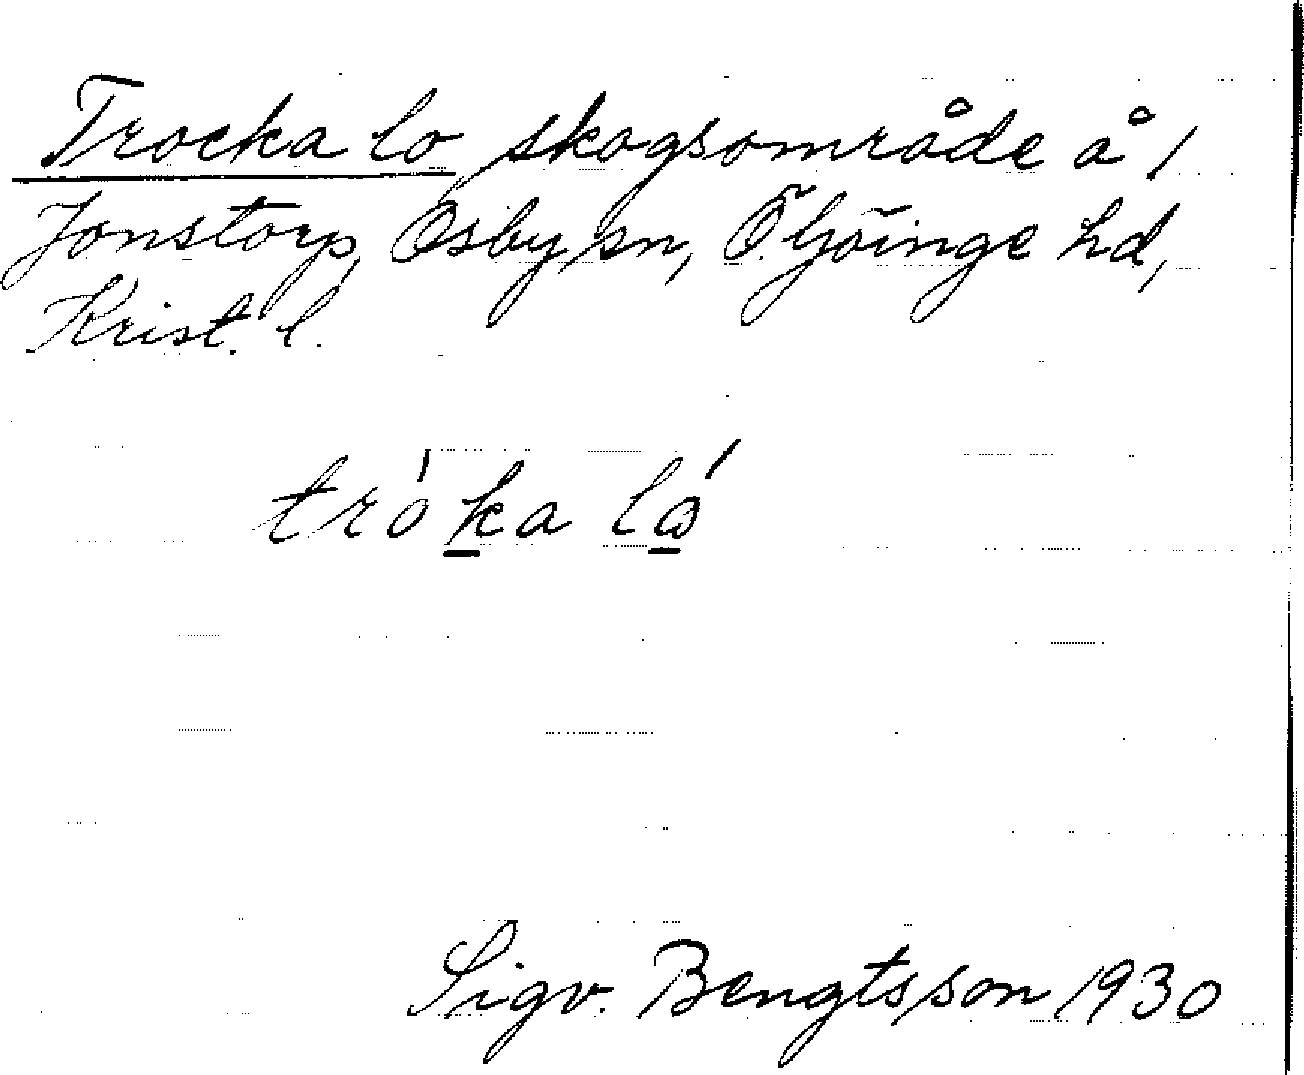 Trocka lo skogsområde å 1
Jonstorp, Osby sn, Ö. Göinge hd,
Krist. l.
tròka lá
Sigv. Bengtsson 1930